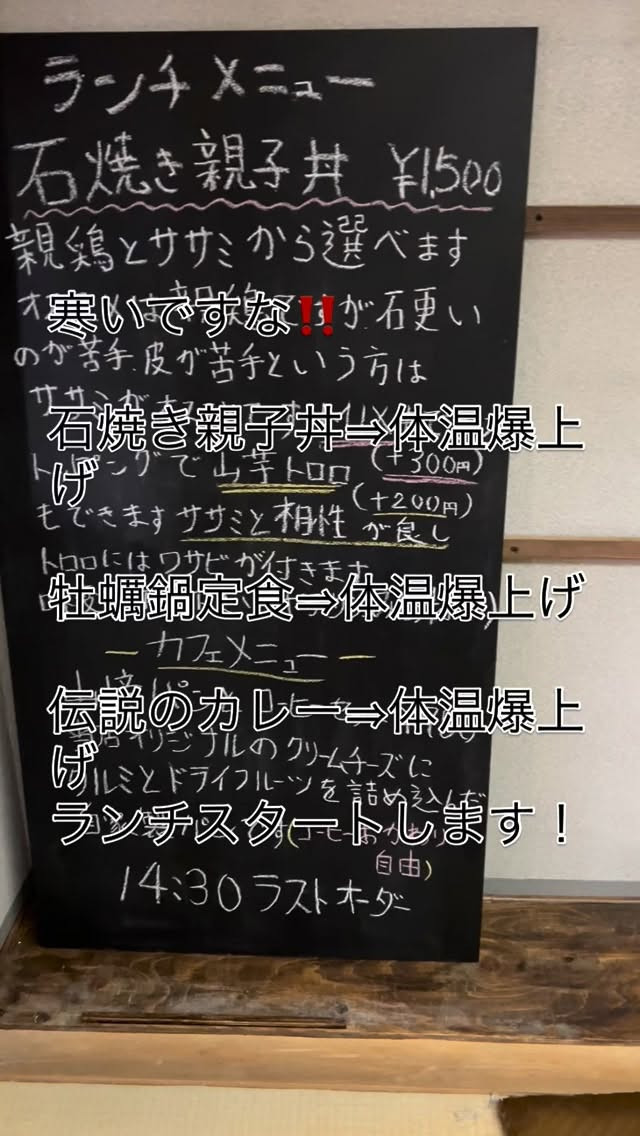 ランチメニュー
石焼き親子丼 ¥1,500
親鶏とササミから選べます
が石更い
寒いですな‼️
のが苦手、皮が苦手という方は
ササミが
石焼き親子丼⇒体温爆上
げ
トッピングで山芋トロロ(+300円)
(+200円)
もできますササミと相性が良し
トロロにはワサビが付きます
牡蠣鍋定食⇒体温爆上げ
ー カフェメニュー ー
伝説のカレー⇒体温爆上
げ
オリジナルのクリームチーズに
クルミとドライフルーツを詰め込んだ
ランチスタートします！
自由)
14:30ラストオーダー